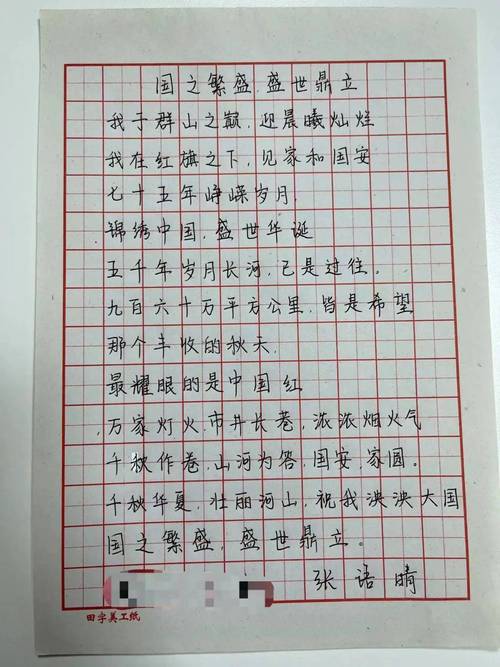 国之繁盛,盛世鼎立
我于群山之巅,迎晨曦灿烂
我在红旗之下,见家和国安
七十五年峥嵘岁月,
锦绣中国,盛世华诞
五千年岁月长河,已是过往。
九百六十万平方公里,皆是希望
那个丰收的秋天,
最耀眼的是中国红
万家灯火,市井长巷,浓浓烟火气
千秧作卷,山河为答,国安,家圆。
千秋华夏,壮丽河山,祝我泱泱大国
国之繁盛,盛世鼎立。
张语晴
田字美工纸